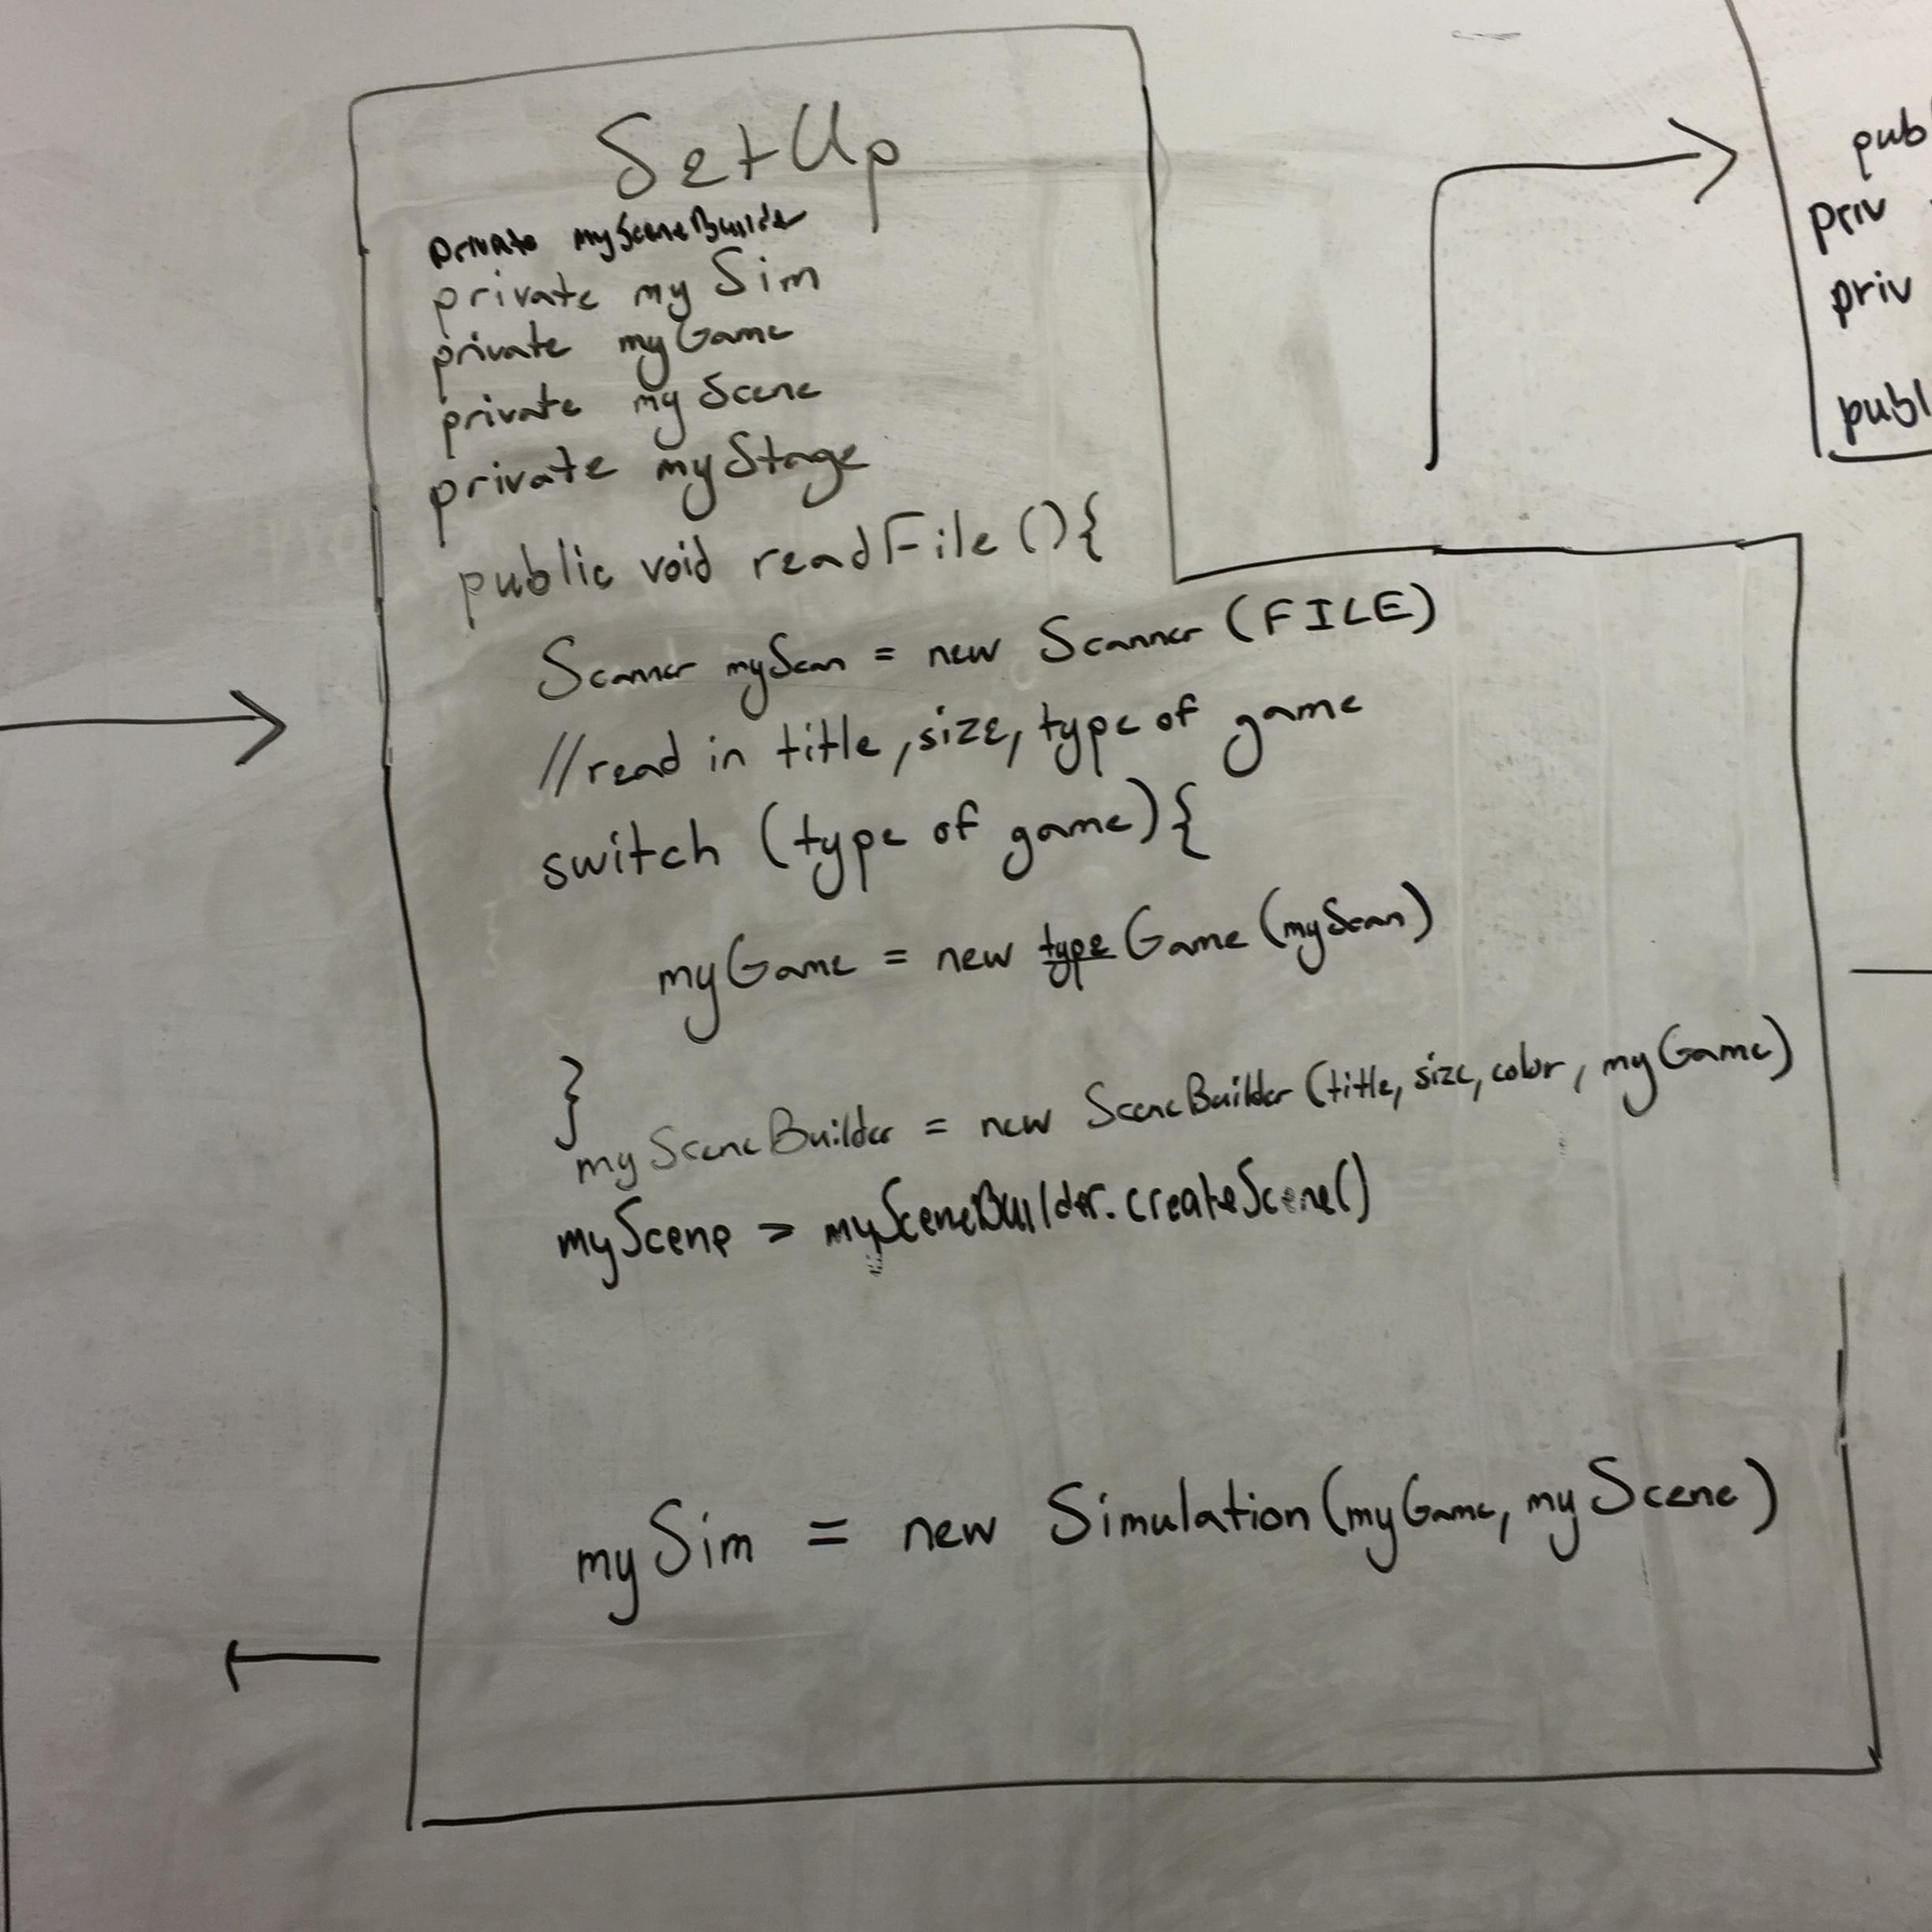 SetUp
private mySceneBuilder
private mySim
private myGame
private myScene
private myStage
public void readFile(){
Scanner myScan = new Scanner (FILE)
//read in title, size, type of game
switch (type of game){
myGame = new type Game (myScan)
}
mySceneBuilder = new SceneBuilder (title, size, color, myGame)
myScene = mySceneBuilder.createScene()
mySim = new Simulation (myGame, myScene)
pub
priv
priv
publ